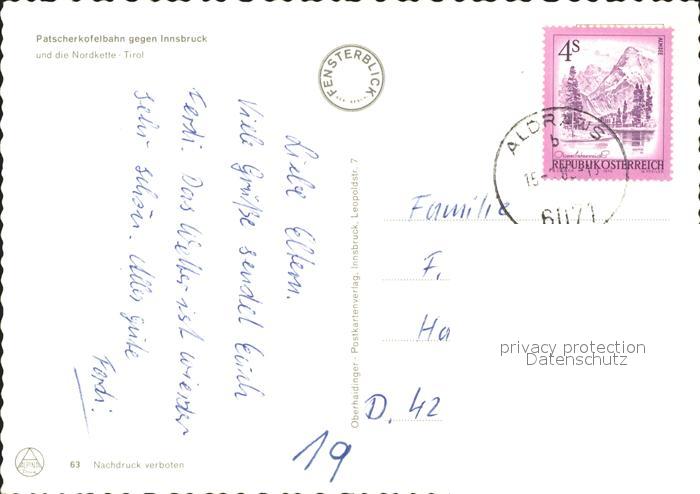 Patscherkofelbahn gegen Innsbruck
und die Nordkette · Tirol
FENSTERBLICK
4s
ALMSEE
REPUBLIK ÖSTERREICH
ALDRANS
b
6071
Liebe Eltern.
Viele Grüße sendet Euch
Ferdi. Das Wetter ist wieder
sehr schön. Alles gute
Ferdi.
Oberhaidinger · Postkartenverlag, Innsbruck, Leopoldstr. 7
Familie
F.
Ha
privacy protection
Datenschutz
D. 42
19
63 Nachdruck verboten